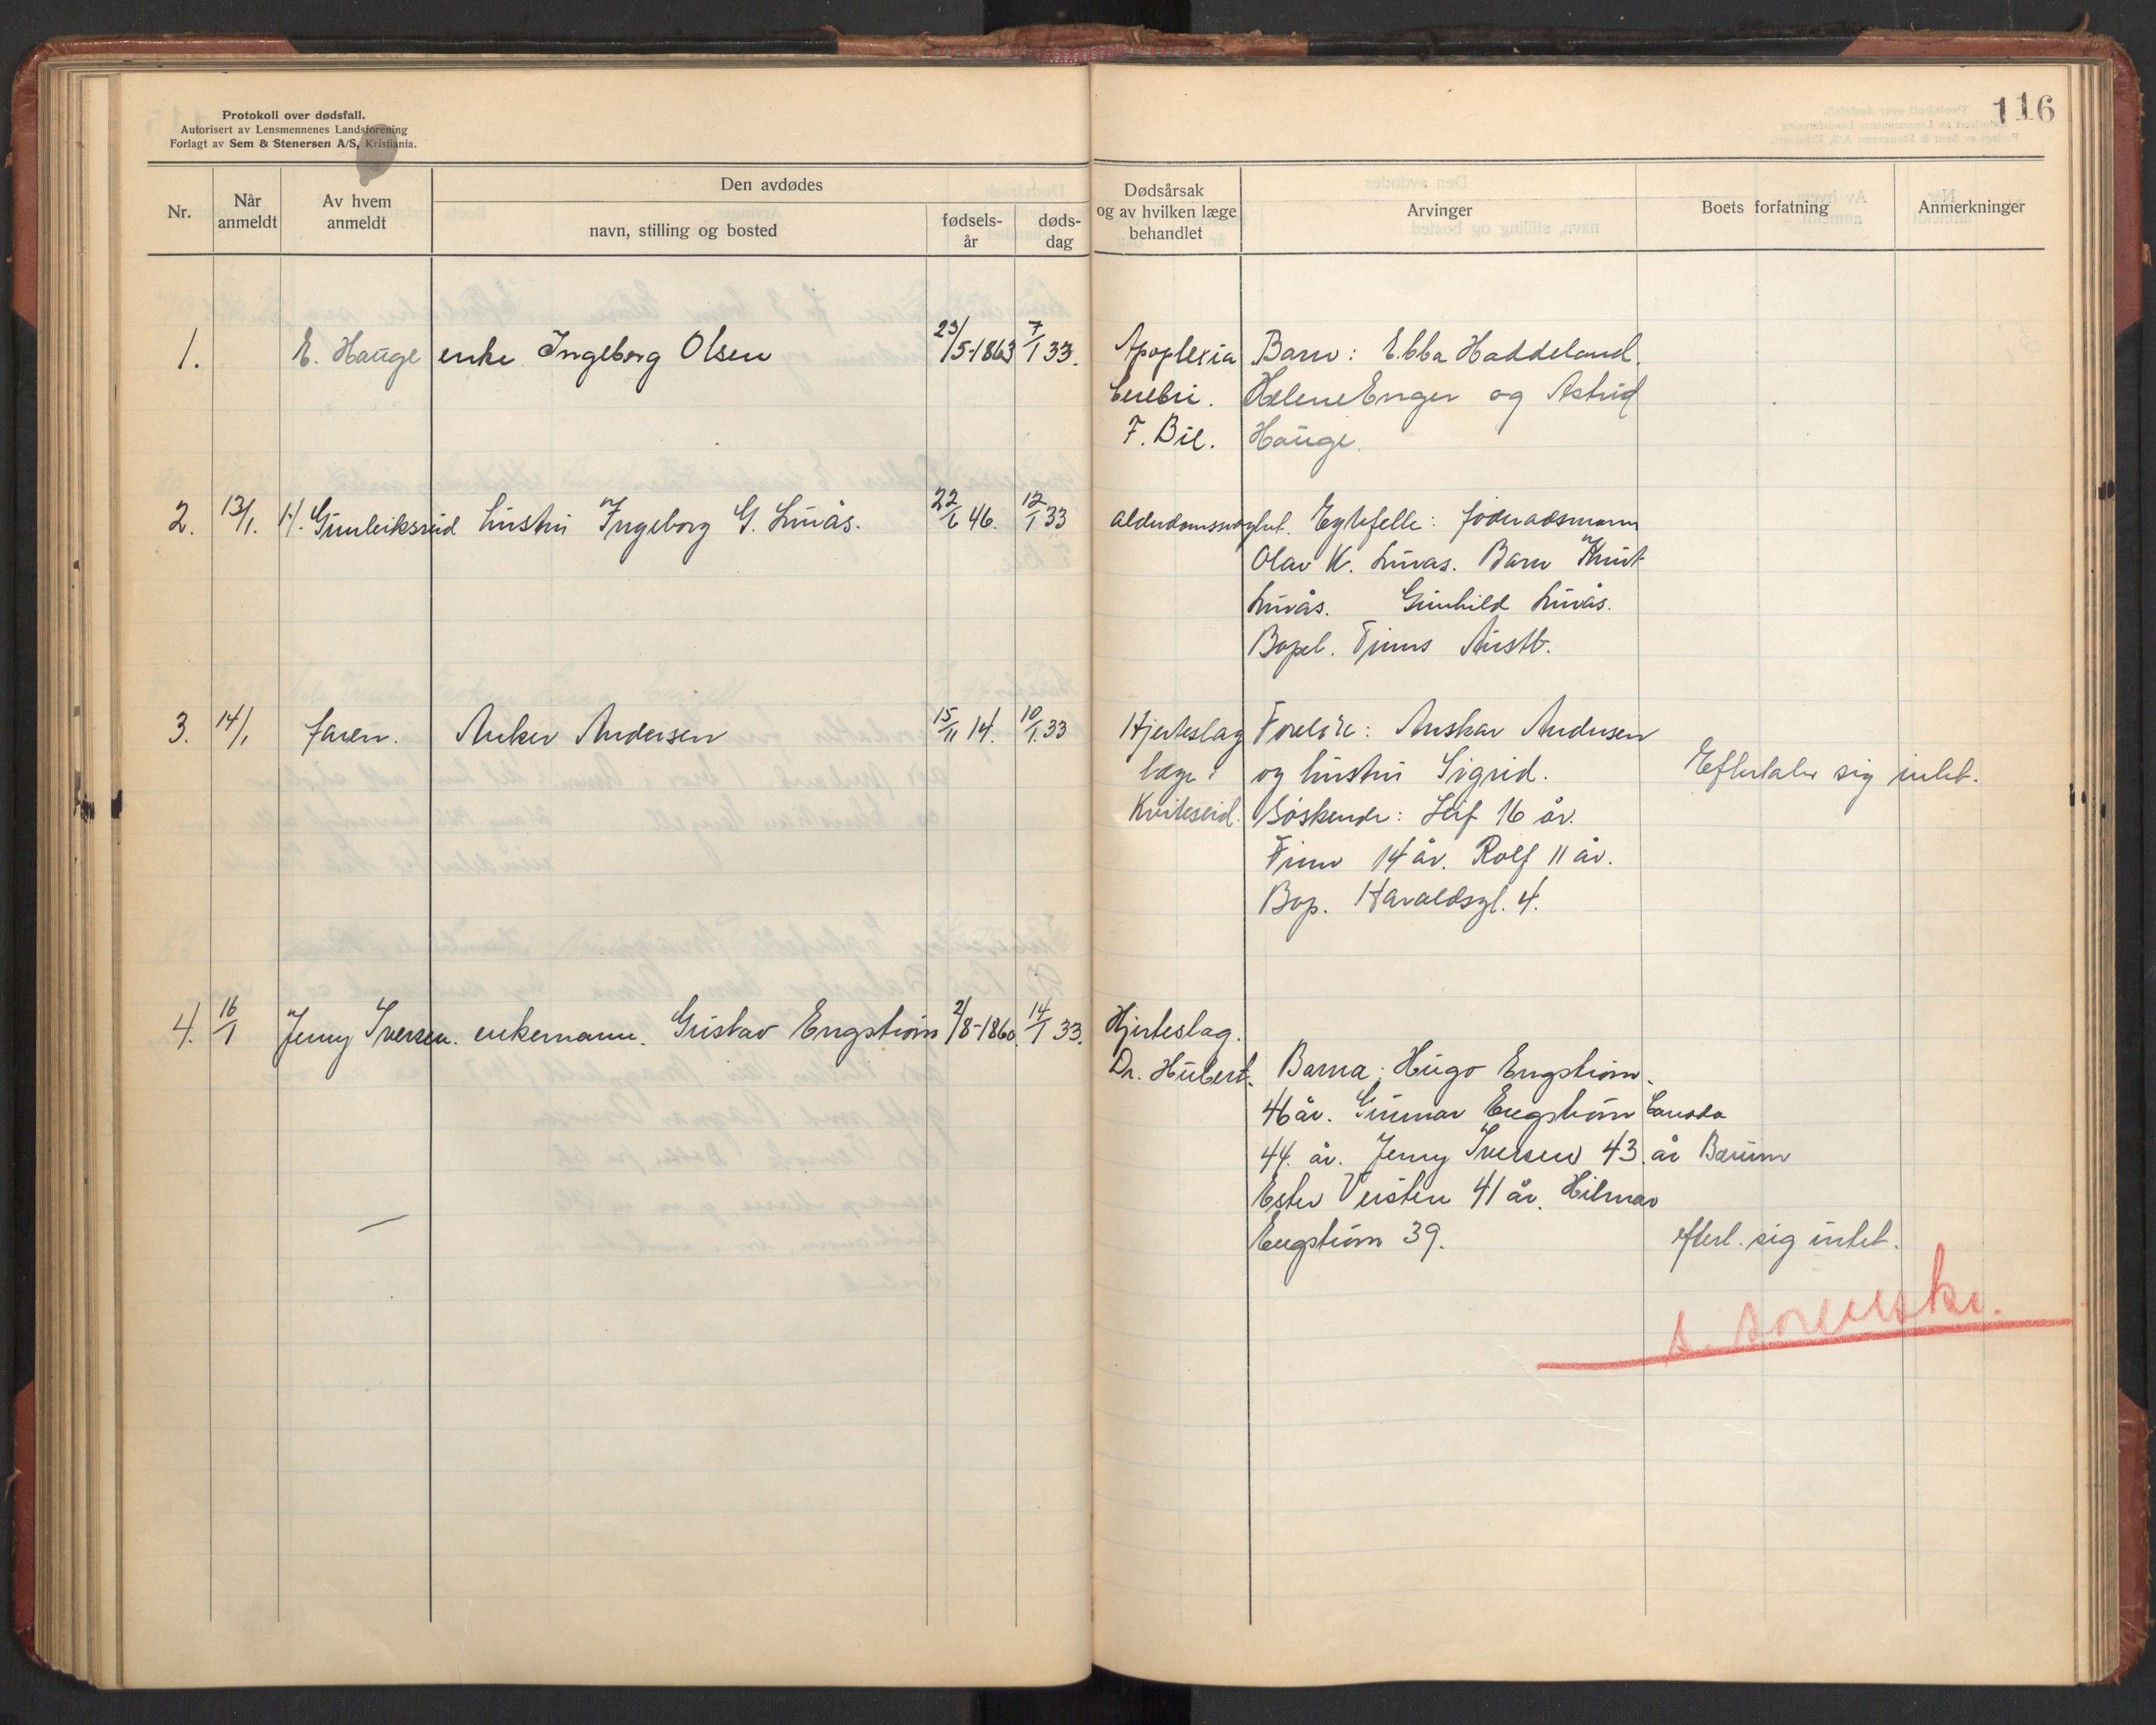 Protokoll over dødsfall.
Autorisert av Lensmennenes Landsforening
Forlagt av Sem & Stenersen A/S, Kristiania.
116
Nr.
Når anmeldt
Av hvem anmeldt
Den avdødes
navn, stilling og bosted
fødsels-år
døds-dag
Dødsårsak
og av hvilken læge
behandlet
Arvinger
Boets forfatning
Anmerkninger
1. E. Hauge enke Ingeborg Olsen 23/5-1863 7/1 33.
Apoplexia Barn: Ebba Haddeland.
Cerebri. Helene Enger og Astrid
F. Bie. Hauge.
2. 13/1. H. Gunleiksrud hustru Ingeborg G. Luvås. 22/6 46. 12/1 33
alderdomssvaghet. Egtefelle: föderådsmann
Olav K. Luvas. Barn Knut
Luvås. Gunhild Luvås.
Bopel. Tinns Austb.
3. 14/1 faren. Anker Andersen 15/11 14. 10/1. 33
Hjerteslag Foreldre: Anskar Andersen
læge i og hustru Sigrid. Efterlater sig intet.
Kviteseid. Söskende: Leif 16 år.
Finn 14 år. Rolf 11 år.
Bop. Haraldsgt. 4.
4. 16/1 Jenny Iversen. enkemann. Gustav Engström 2/8-1860. 14/1 33.
Hjerteslag.
Dr. Hubert. Barna: Hugo Engström.
46 år. Gunnar Engström Canada
44. år. Jenny Iversen 43. år Bærum
Ester 41 år. Hilmar
Engström 39. efterl. sig intet.
s. sorenskr.